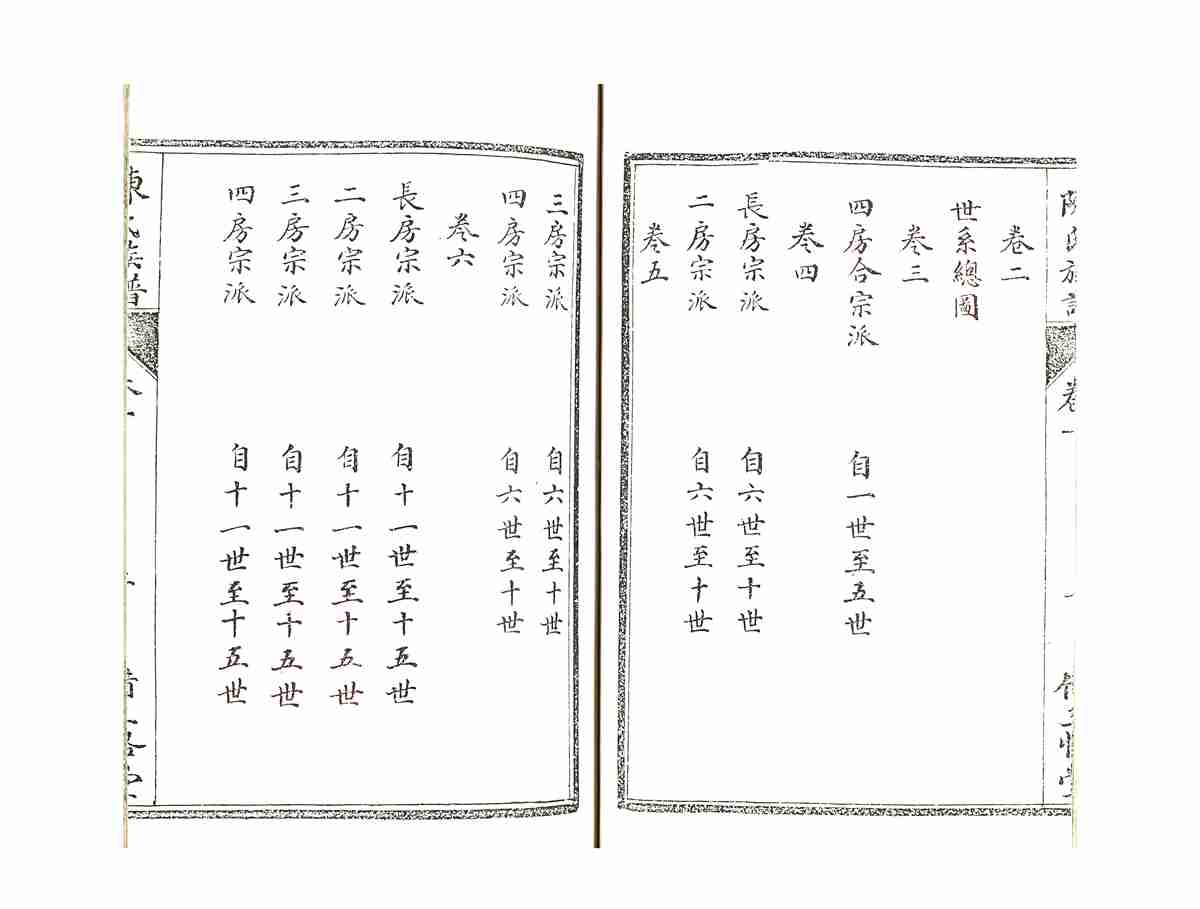 陳氏族譜
卷一
卷二
世系總圖
卷三
四房合宗派 自一世至五世
卷四
長房宗派 自六世至十世
二房宗派 自六世至十世
卷五
三房宗派 自六世至十世
四房宗派 自六世至十世
卷六
長房宗派 自十一世至十五世
二房宗派 自十一世至十五世
三房宗派 自十一世至十五世
四房宗派 自十一世至十五世
陳氏族譜